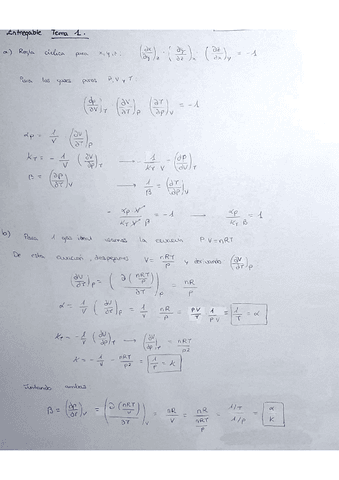 Entregable Tema 1.
a) Regla cíclica para x, y, z: (∂x/∂y)_z · (∂y/∂z)_x · (∂z/∂x)_y = -1
Para los gases puros P, V y T:
(∂p/∂V)_T · (∂V/∂T)_P · (∂T/∂p)_V = -1
αp = 1/V · (∂V/∂T)_P
k_T = - 1/V · (∂V/∂p)_T → - 1/(k_T · V) = (∂p/∂V)_T
β = (∂p/∂T)_V → 1/β = (∂T/∂p)_V
= - (αp · V)/(k_T · V · β) = -1 → αp/(k_T β) = 1
b) Para 1 gas ideal usamos la ecuación P·V = nRT
De esta ecuación, despejamos V = nRT/P y derivando (∂V/∂T)_P
(∂V/∂T)_P = (∂(nRT/P)/∂T)_P = nR/P
α = 1/V · (∂V/∂T)_P = 1/V · nR/P = PV/T · 1/PV = 1/T = α
k_T = - 1/V (∂V/∂p)_T → (∂V/∂p)_T = - nRT/p²
k = - 1/V · - nRT/p² = 1/P = k
Juntando ambas
β = (∂p/∂T)_V = (∂(nRT/V)/∂T)_V = nR/V = nR/(nRT/P) = (1/T)/(1/P) = α/k